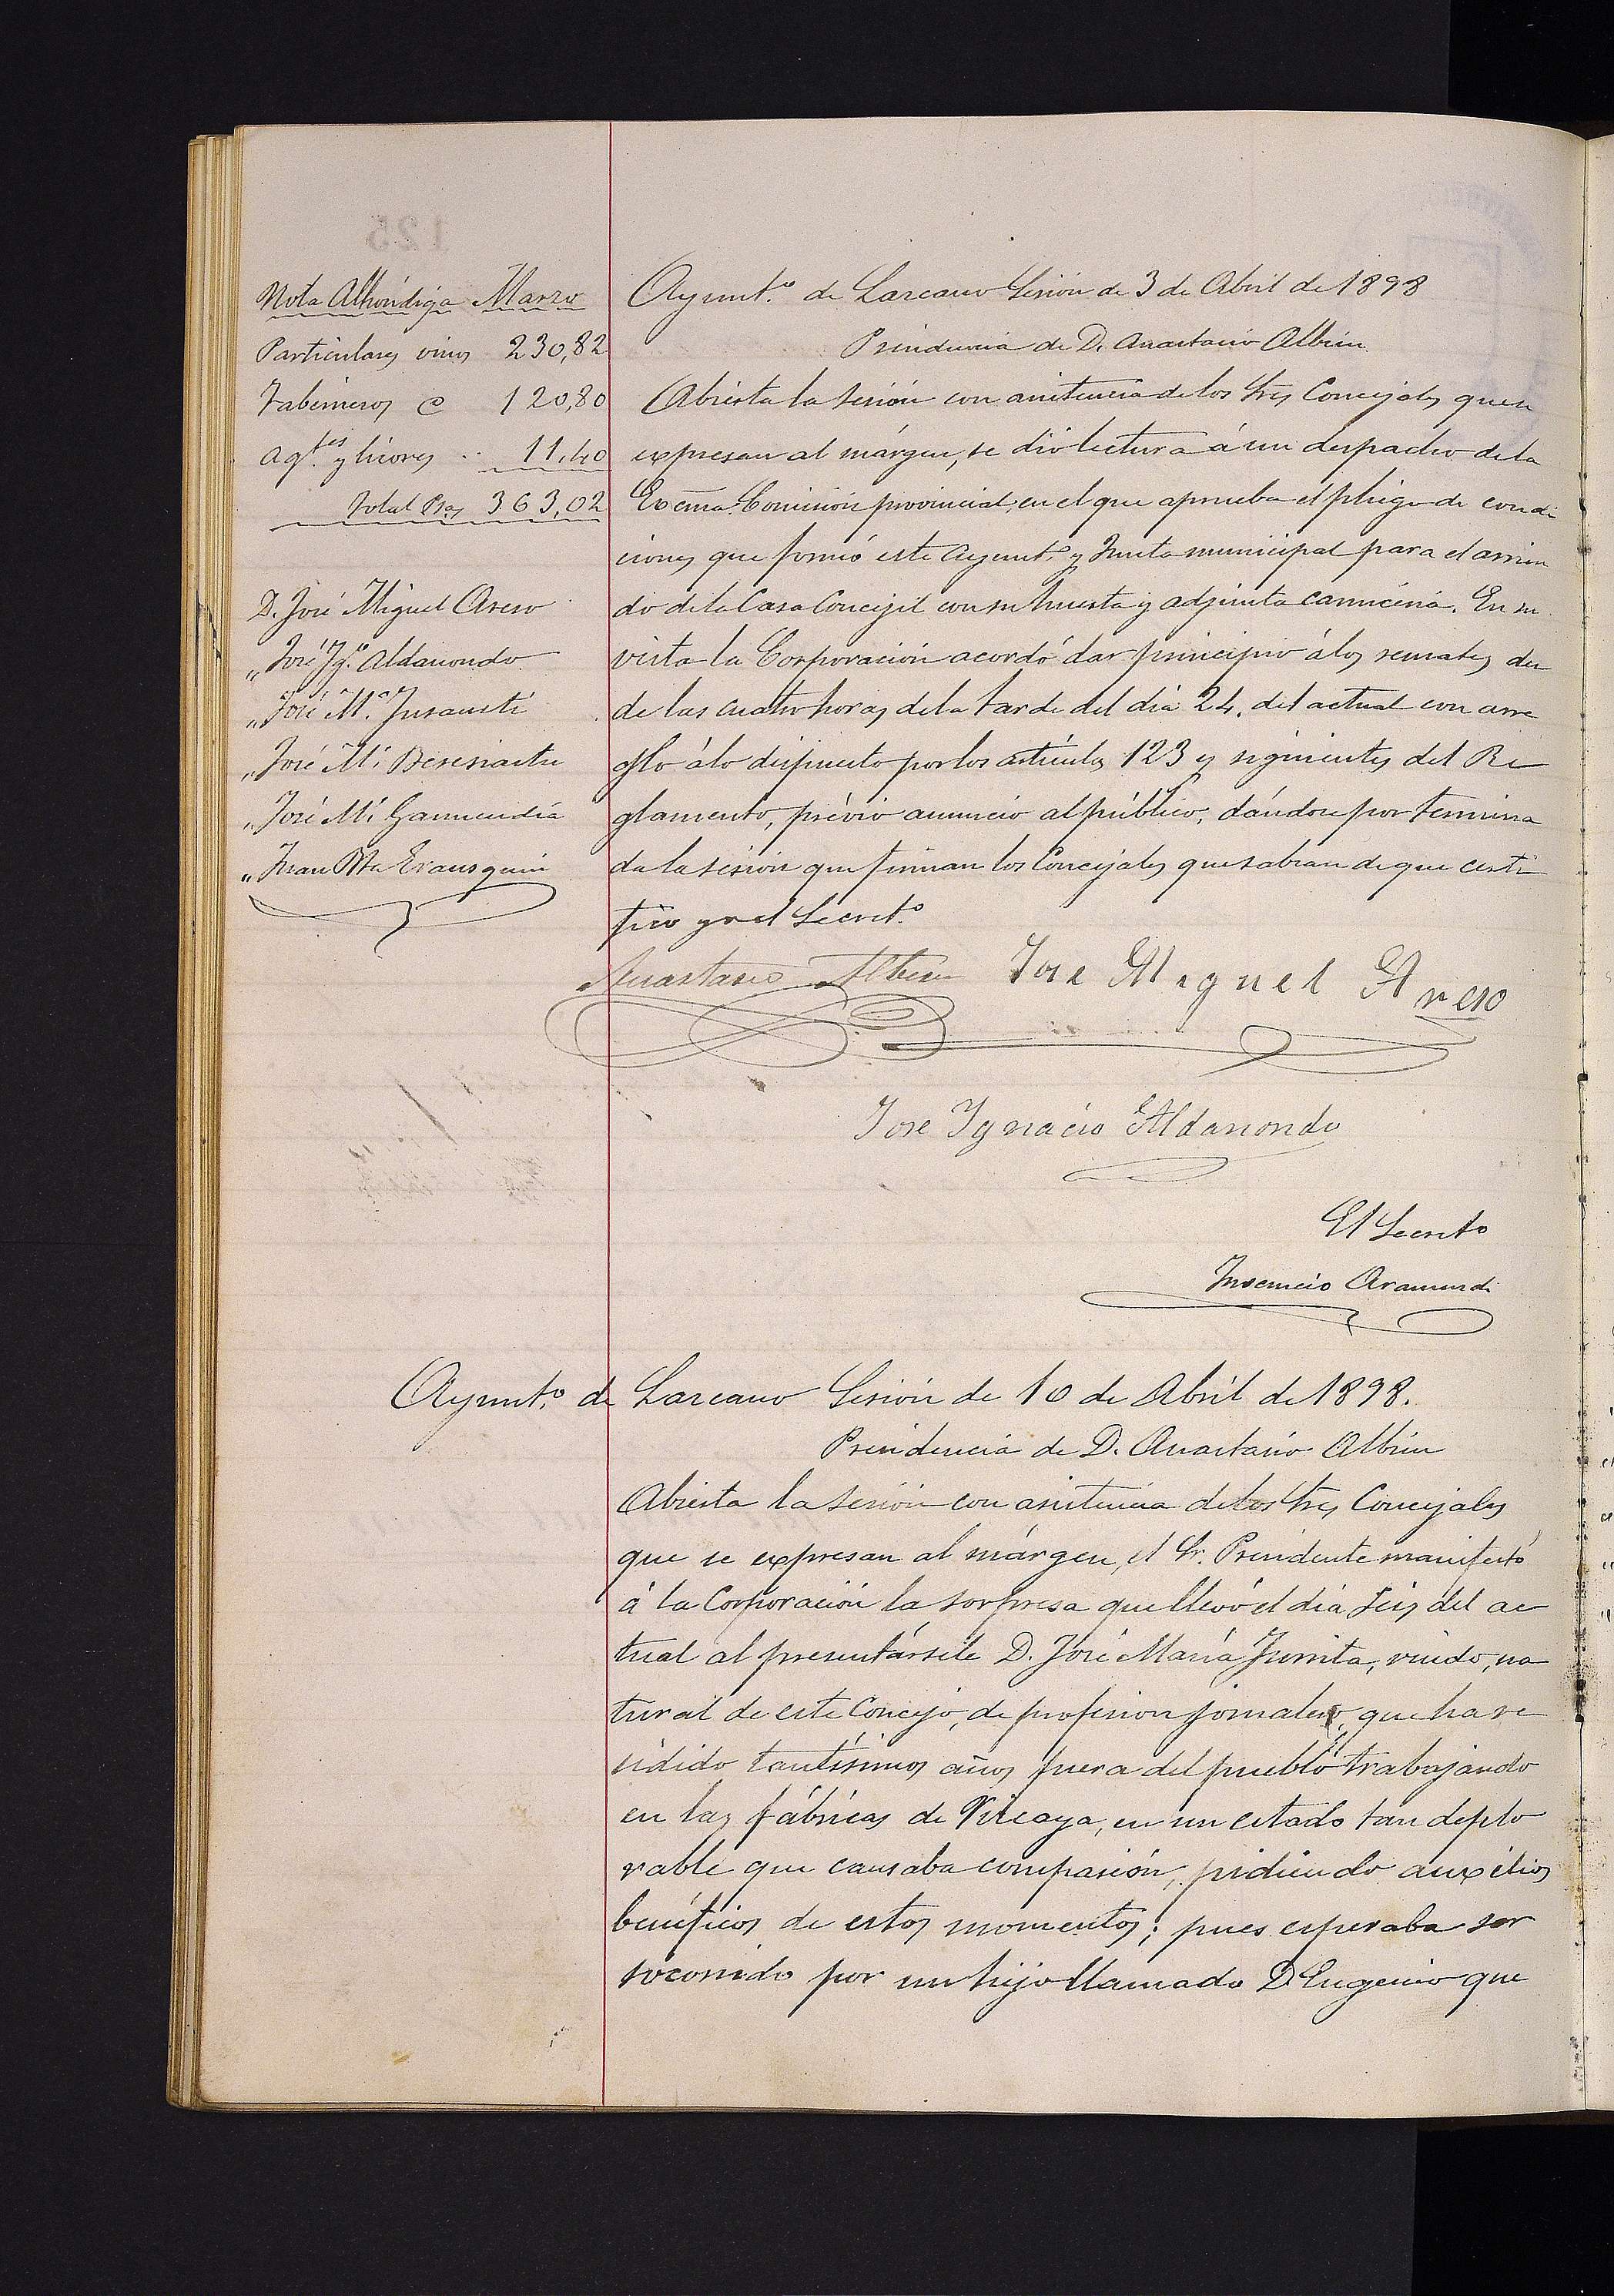 Nota Alhóndiga Marzo
Particulares vinos 230,82
Taberneros @ 120,80
Agtes y licores .. 11,40
Total Pts 363,02
D. José Miguel Areso
" José Ygº Aldanondo
" José Mª Insausti
" José Mª Beresiartu
" José Mª Garmendia
" Juan Bta Erausquin
Ayuntº de Lazcano Sesión de 3 de Abril de 1898
Presidencia de D. Anastasio Albisu
Abierta la sesión con asistencia de los Sres Concejales que se
expresan al márgen, se dió lectura á un despacho de la
Excma. Comisión provincial, en el que aprueba el pliego de condi
ciones que formó este Ayuntº y Junta municipal para el arrien
do de la Casa Concejil con su huerta y adjunta carnicería. En su
vista la Corporación acordó dar principio á los remates des
de las cuatro horas de la tarde del día 24. del actual con arre
glo á lo dispuesto por los artículos 123 y siguientes del Re
glamento, prévio anuncio al público, dándose por termina
da la sesión que firman los Concejales que sabian de que certi
fico yo el Secretº
Anastasio Albisu Jose Miguel Areso
Jose Ygnacio Aldanondo
El Secreto
Inocencio Aramendi
Ayuntº de Lazcano Sesión de 10 de Abril de 1898.
Presidencia de D. Anastasio Albisu
Abierta la sesión con asistencia de los Sres Concejales
que se expresan al márgen, el Sr. Presidente manifestó
á la Corporación la sorpresa que llevó el día seis del ac
tual al presentársele D. José María Iurrita, viudo, na
tural de este Concejo, de profesion jornalero, que ha re
sidido tantísimos años fuera del pueblo trabajando
en las fábricas de Vizcaya, en un estado tan deplo
rable que causaba compasión, pidiendo auxilios
benéficos de estos momentos; pues esperaba ser
socorrido por un hijo llamado D. Eugenio que